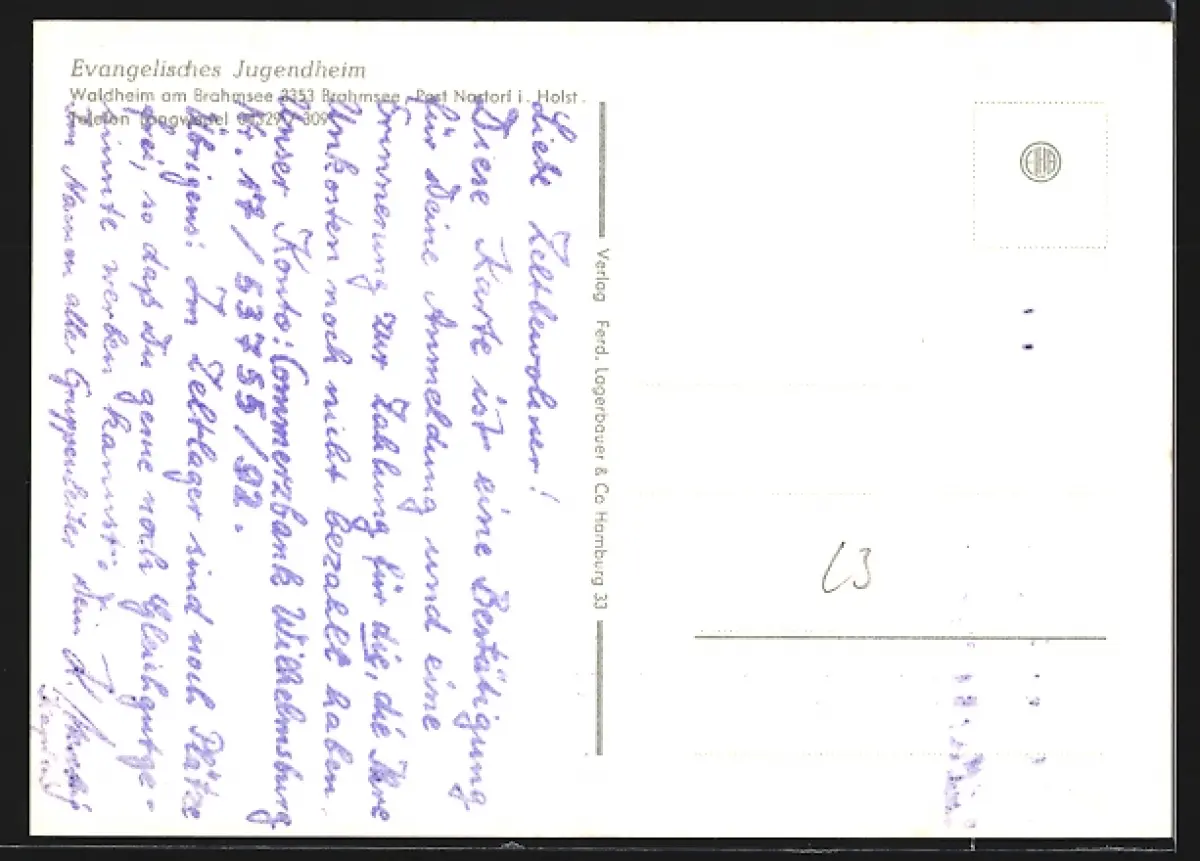 Evangelisches Jugendheim
Waldheim am Brahmsee 2353 Brahmsee Post Nortorf i. Holst.
Telefon Langwedel 309
Liebe Zeltbewohner!
Diese Karte ist eine Bestätigung
für Deine Anmeldung und eine
Erinnerung zur Zahlung für die, die Ihre
Unkosten noch nicht bezahlt haben.
Unser Konto: Commerzbank Wilhelmsburg
Nr. 17/53755/92.
Übrigens: Im Zeltlager sind noch Plätze
frei, so daß Du gerne noch Gleichgutge-
sinnte werben kannst.
Im Namen aller Gruppenleiter Dein
Verlag Ferd. Lagerbauer & Co Hamburg 33
L3